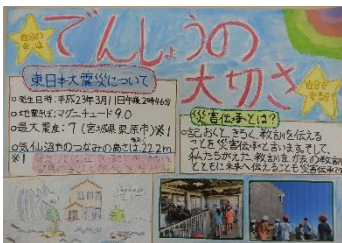 自分の
でんしょうの
大切さ
東日本大震災について
○発生日時:平成23年3月11日午後2時46分
○地震きぼ:マグニチュード9.0
○最大震度:7(宮城県栗原市)※1
○気仙沼のつなみの高さは22.2m
※1
災害伝承とは?
○記おくと、きろく、教訓を伝える
ことを災害伝承と言います。そして、
私たちがえた、教訓を、
とともに未来へ伝えることも災害伝承です